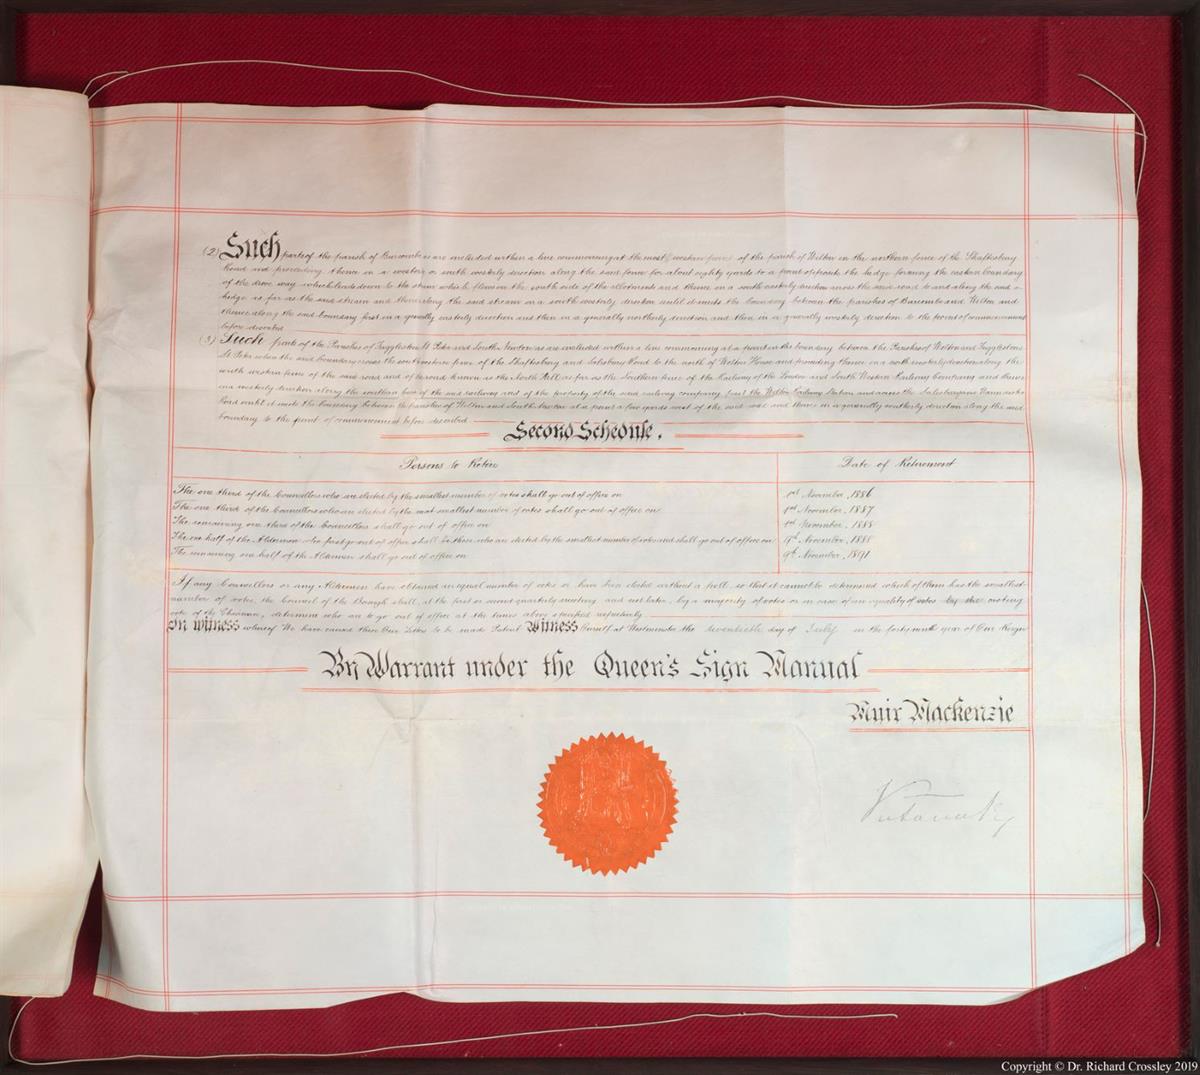 (2) Such parts of the parish of Burcombe as are included within a line commencing at the most western point of the parish of Wilton in the northern fence of the Shaftesbury
Road and proceeding thence in a western or south westerly direction along the said fence for about eighty yards to a point opposite the hedge forming the eastern boundary
of the drove way which leads down to the stream which flows on the south side of the allotments and thence on a south easterly direction across the said road to and along the said
hedge as far as the said stream and thence along the said stream in a south westerly direction until it meets the boundary between the parishes of Burcombe and Wilton and
thence along the said boundary first in a generally easterly direction and then in a generally northerly direction and then in a generally westerly direction to the point of commencement
before described
(3) Such parts of the Parishes of Fugglestone St Peter and South Newton as are included within a line commencing at a point in the boundary between the Parishes of Wilton and Fugglestone
St Peter where the said boundary crosses the south western fence of the Shaftesbury and Salisbury Road to the north of Wilton House and proceeding thence in a north westerly direction along the
south western fence of the said road and of the road known as the North Hill as far as the Southern fence of the Railway of the London and South Western Railway Company and thence
in a westerly direction along the southern fence of the said railway and of the property of the said railway company past the Wilton Railway Station and across the Salisbury and Warminster
Road until it meets the boundary between the parishes of Wilton and South Newton at a point a few yards west of the said road and thence in a generally southerly direction along the said
boundary to the point of commencement before described
Second Schedule.
Persons to Retire
Date of Retirement
The one third of the Councillors who are elected by the smallest number of votes shall go out of office on 1st November, 1886
The one third of the Councillors who are elected by the next smallest number of votes shall go out of office on 1st November, 1887
The remaining one third of the Councillors shall go out of office on 1st November, 1888
The one half of the Aldermen who first go out of office shall be those who are elected by the smallest number of votes and shall go out of office on 9th November, 1888
The remaining one half of the Aldermen shall go out of office on 9th November, 1891
If any Councillors or any Aldermen have obtained an equal number of votes or have been elected without a poll, so that it cannot be determined which of them has the smallest
number of votes, the Council of the Borough shall, at the first or second quarterly meeting and not later, by a majority of votes or in case of an equality of votes by the casting
vote of the Chairman, determine who are to go out of office at the times above specified respectively
In witness whereof We have caused these Our Letters to be made Patent Witness Ourself at Westminster the seventeenth day of July in the forty ninth year of Our Reign
By Warrant under the Queen's Sign Manual
Muir Mackenzie
Copyright © Dr. Richard Crossley 2019